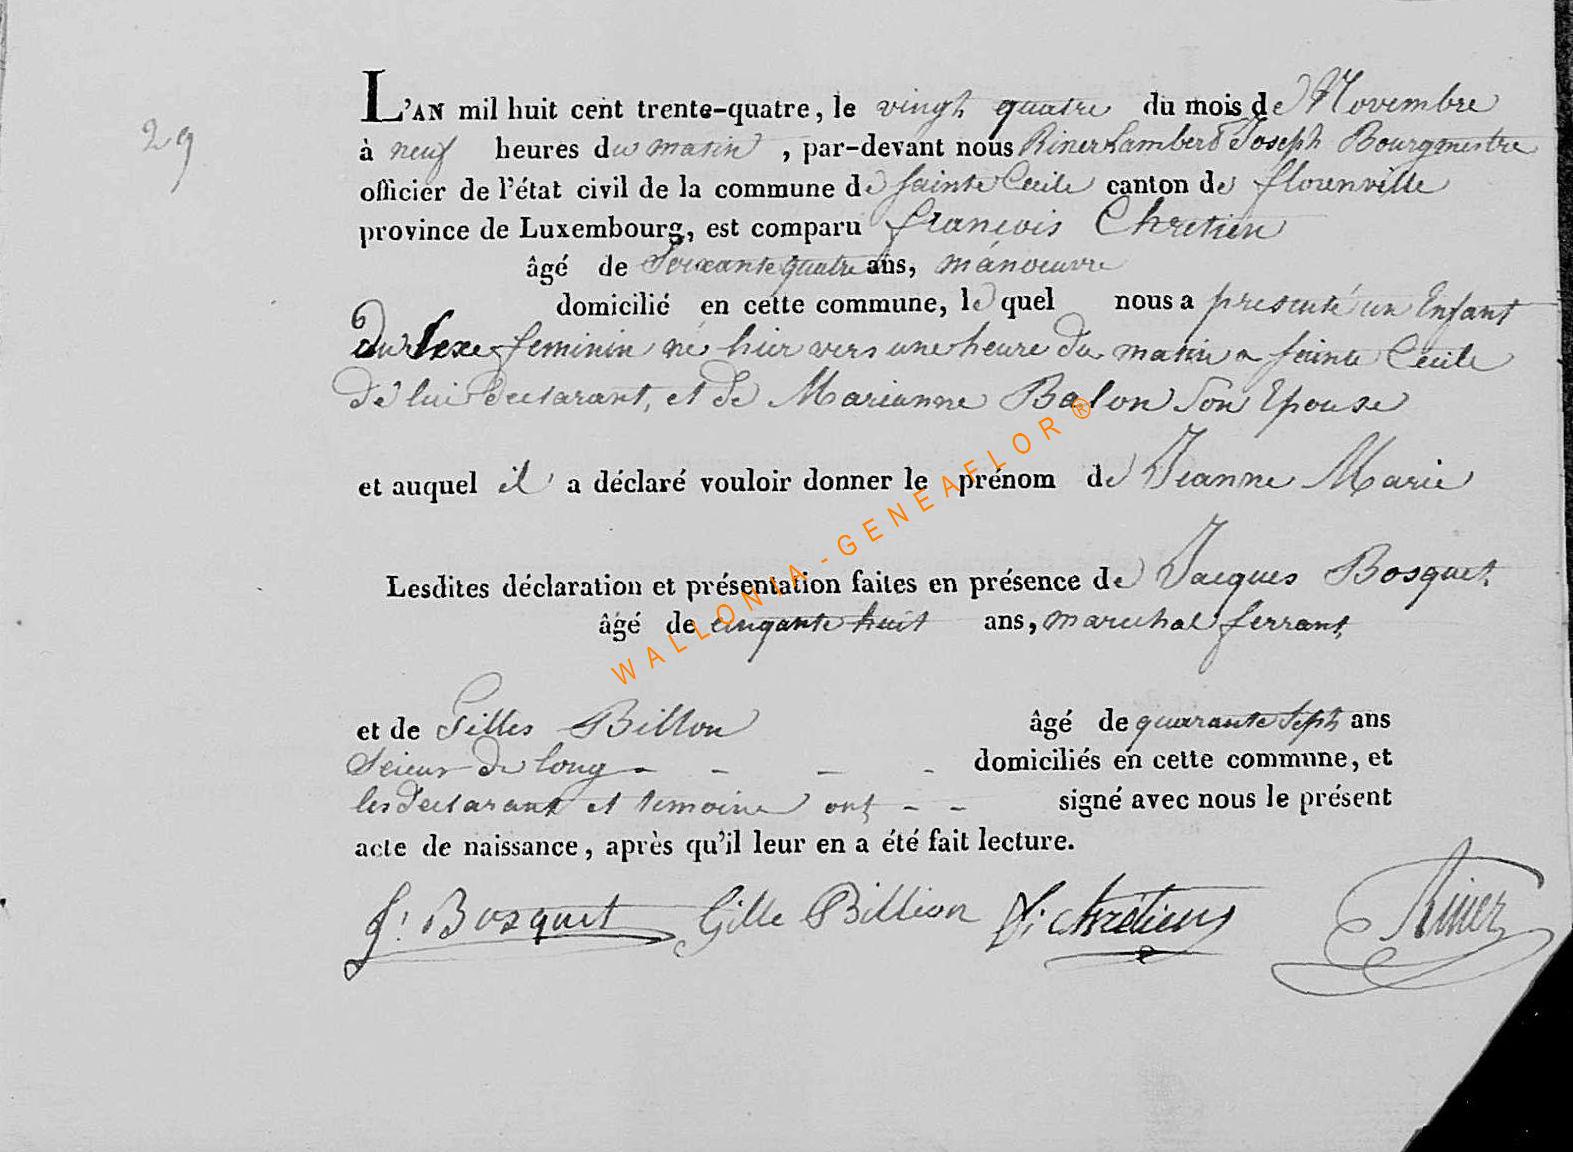 29
L'AN mil huit cent trente-quatre, le vingt quatre du mois de Novembre
à neuf heures du matin, par-devant nous Riner Lambert Joseph Bourgmestre
officier de l'état civil de la commune de sainte Cecile canton de florenville
province de Luxembourg, est comparu françois Chretien
âgé de Soixante quatre ans, manoeuvre
domicilié en cette commune, le quel nous a presenté un Enfant
du Sexe feminin né hier vers une heure du matin a sainte Cecile
de lui declarant, et de Marianne Balon Son Epouse
et auquel il a déclaré vouloir donner le prénom de Jeanne Marie
Lesdites déclaration et présentation faites en présence de Jacques Bosquet
âgé de cinqante huit ans, marechal ferrant
et de Gilles Billon âgé de quarante Sept ans
Scieur de long - - - - domiciliés en cette commune, et
les declarant et temoins ont - - signé avec nous le présent
acte de naissance, après qu'il leur en a été fait lecture.
J. Bosquet Gille Billion f: chrétien Riner
WALLONIA-GENEAFLOR®